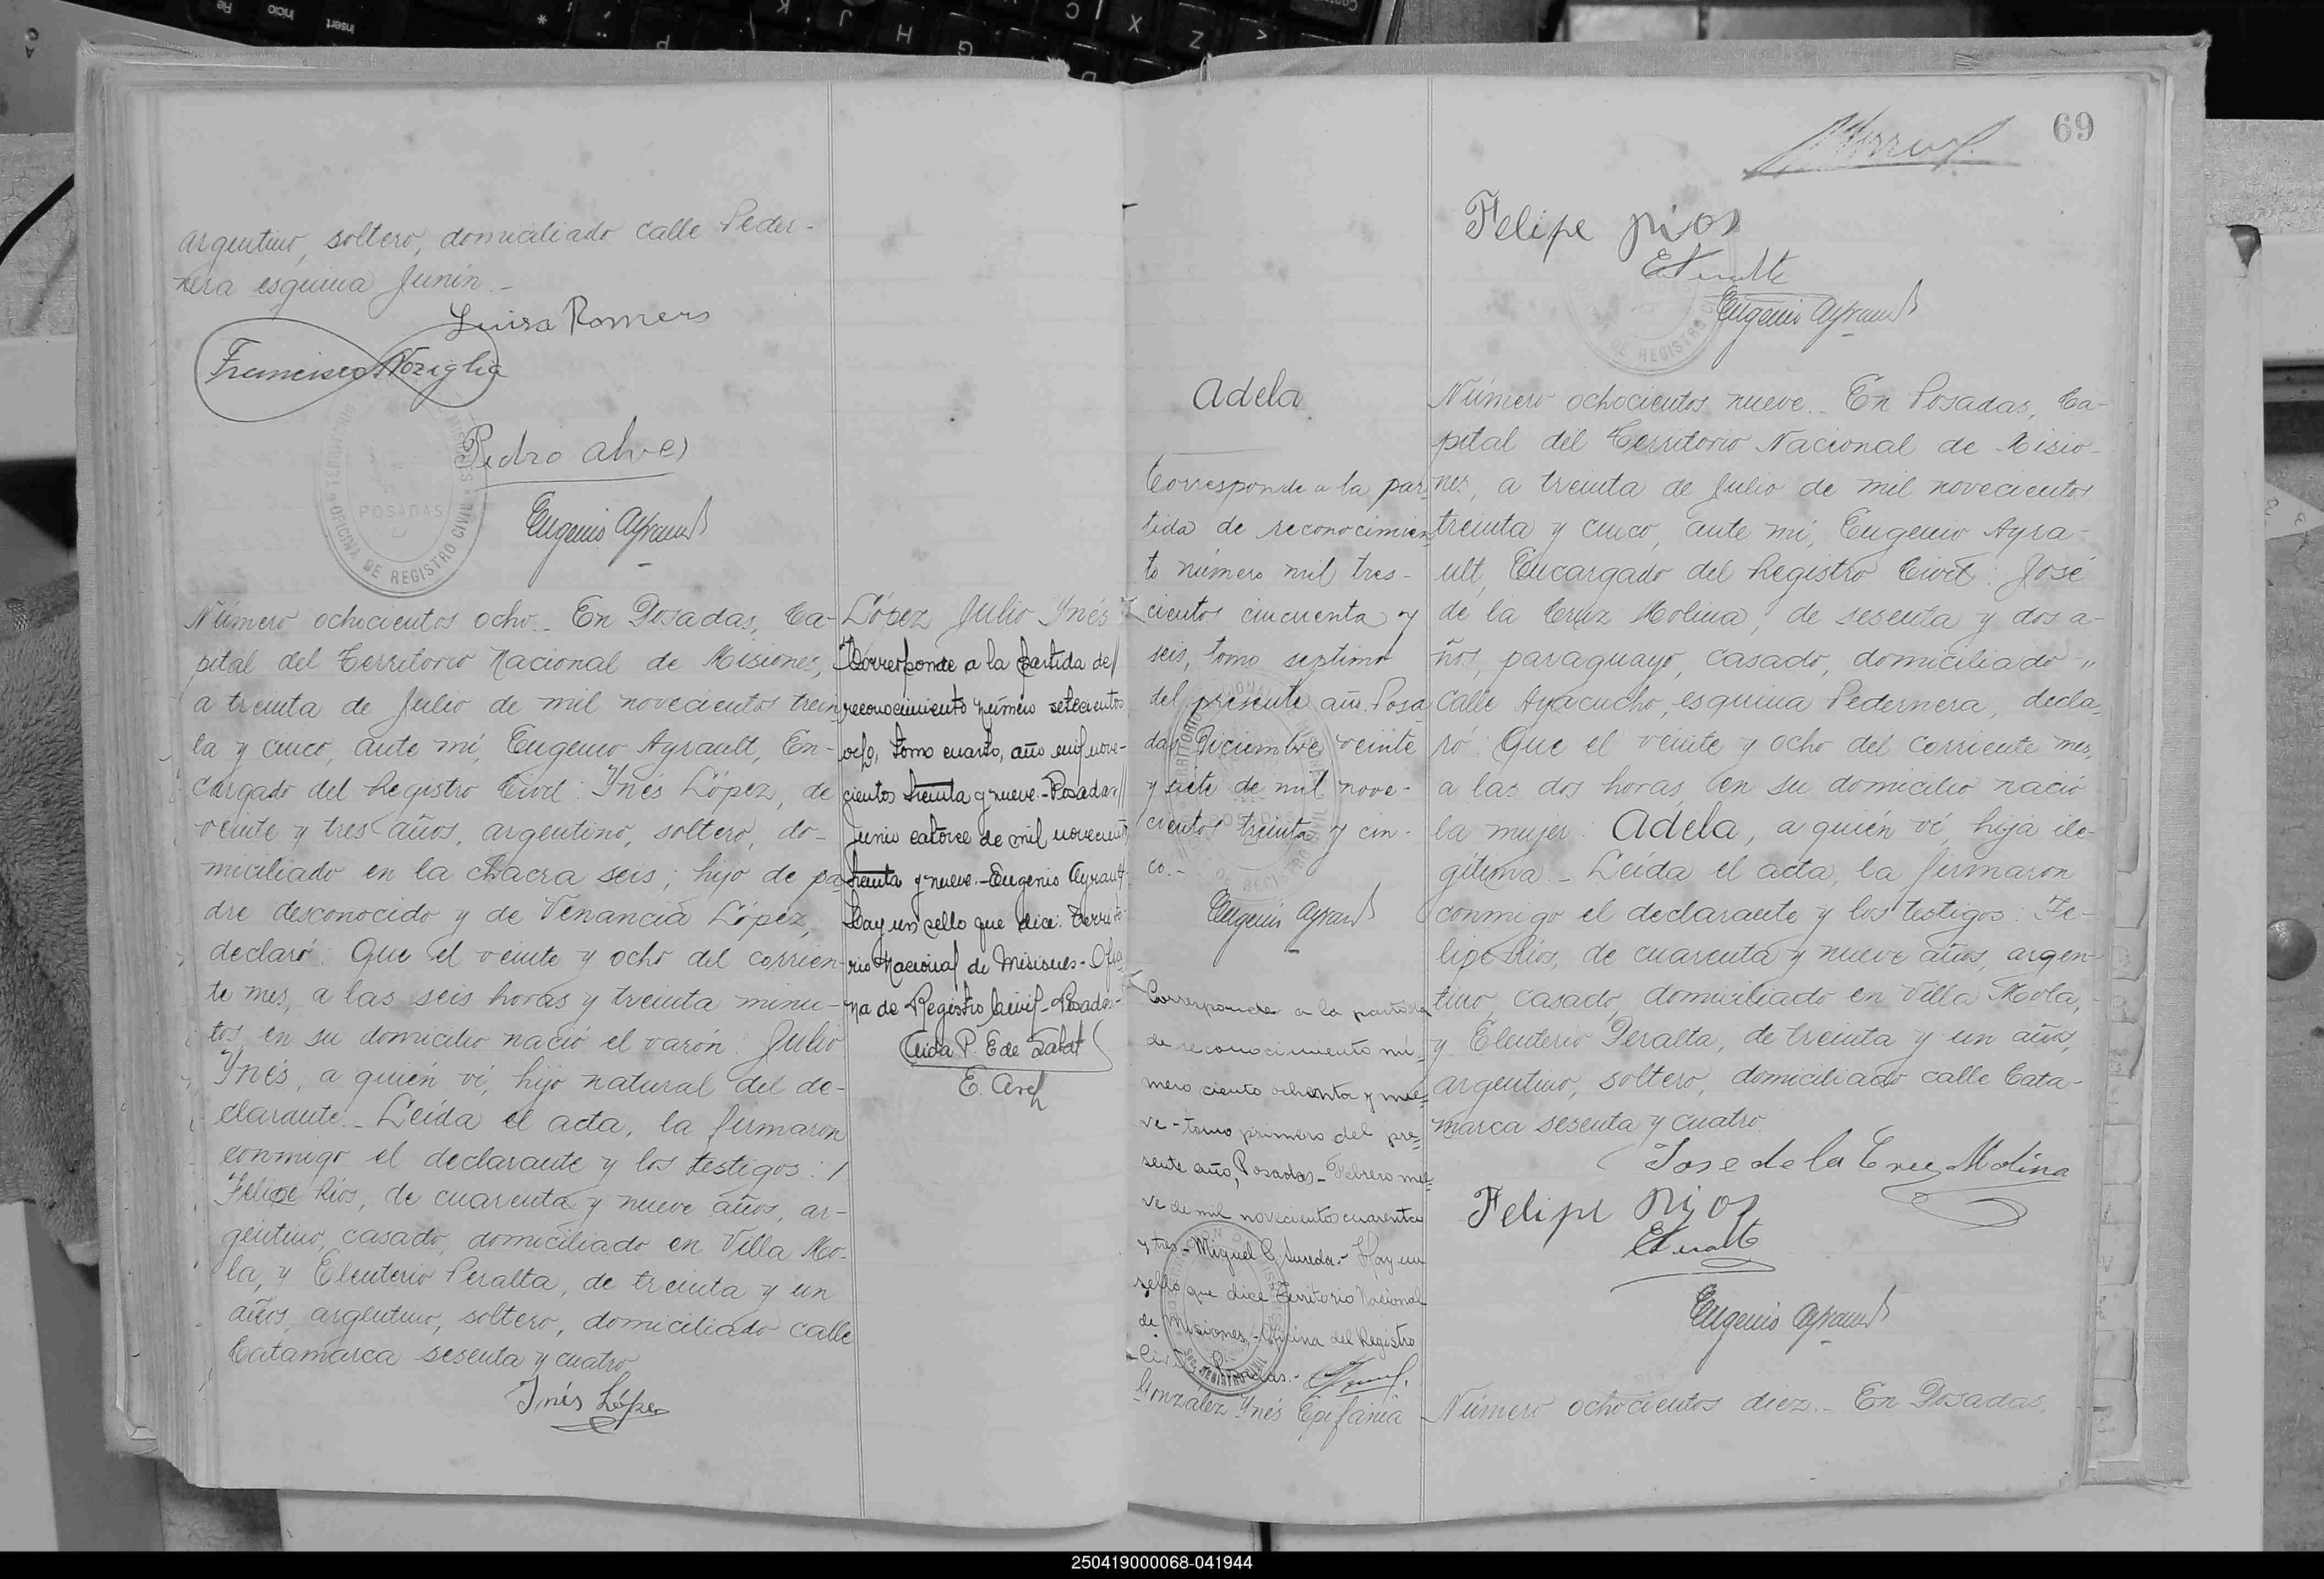 argentino, soltero, domiciliado calle Peder-
nera esquina Junín.-
Luisa Romero
Francisco Noziglia
Pedro Alves
Eugenio Ayrault
OFICINA DE REGISTRO CIVIL
POSADAS
Número ochocientos ocho.- En Posadas, Ca-
pital del Territorio Nacional de Misiones,
a treinta de Julio de mil novecientos trein
ta y cinco, ante mí, Eugenio Ayrault, En-
cargado del Registro Civil: Ynés López, de
veinte y tres años, argentino, soltero, do-
miciliado en la chacra seis; hijo de pa
dre desconocido y de Venancia López,
declaró: Que el veinte y ocho del corrien-
te mes, a las seis horas y treinta minu-
tos, en su domicilio nació el varón: Julio
Ynés, a quién ví, hijo natural del de-
clarante.- Leída el acta, la firmaron
conmigo el declarante y los testigos: /
Felipe Ríos, de cuarenta y nueve años, ar-
gentino, casado, domiciliado en Villa Mo-
la, y Eleuterio Peralta, de treinta y un
años, argentino, soltero, domiciliado calle
Catamarca sesenta y cuatro
Inés López
López Julio Ynés
Corresponde a la partida de
reconocimiento número setecientos
ocho, tomo cuarto, año mil nove-
cientos treinta y nueve.-Posadas//
Junio catorce de mil novecientos
treinta y nueve.-Eugenio Ayrault
Hay un sello que dice: Territo
rio Nacional de Misiones-Ofici
na de Registro Civil-Posadas-
69
Felipe Rios
Eugenio Ayrault
DE REGISTRO
Adela
Corresponde a la par
tida de reconocimien
to número mil tres-
cientos cincuenta y
seis, tomo septimo
del presente año. Posa
das, Diciembre veinte
y siete de mil nove-
cientos treinta y cin-
co.-
Eugenio Ayrault
Corresponde a la partida
de reconocimiento nú-
mero ciento ochenta y nue-
ve-tomo primero del pre-
sente año, Posadas-Febrero nue-
ve de mil novecientos cuarenta
y tres-Miguel G. Sureda.- Hay un
sello que dice Territorio Nacional
de Misiones,-Oficina del Registro
Civil Posadas.-
González Ynés Epifania
Número ochocientos nueve.- En Posadas, Ca-
pital del Territorio Nacional de Misio-
nes, a treinta de Julio de mil novecientos
treinta y cinco, ante mí, Eugenio Ayra-
ult, Encargado del Registro Civil: José
de la Cruz Molina, de sesenta y dos a-
ños, paraguayo, casado, domiciliado "
calle Ayacucho, esquina Pedernera, decla-
ró: Que el veinte y ocho del corriente mes,
a las dos horas, en su domicilio nació
la mujer: Adela, a quién ví, hija ile-
gítima.- Leída el acta, la firmaron
conmigo el declarante y los testigos: Fe-
lipe Ríos, de cuarenta y nueve años, argen-
tino, casado, domiciliado en Villa Mola,
y Eleuterio Peralta, de treinta y un años,
argentino, soltero, domiciliado calle Cata-
marca sesenta y cuatro.
Jose de la Cruz Molina
Felipe Rios
Eugenio Ayrault
Número ochocientos diez.- En Posadas,
250419000068-041944